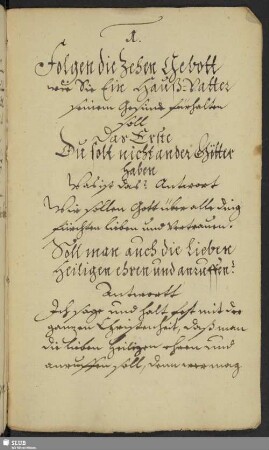 1.
Folgen die Zehen Gebott
wie Sie Ein Hauß-Vatter
seinem Gesind fürhalten
soll
Das Erste
Du solt nicht ander Götter
haben
Was ist das? Antwort
Wir sollen Gott über alle ding
fürchten lieben und Vertrauen.
Soll man auch die Lieben
Heiligen ehren und anruffen?
Antwortt
Ich sage und halt fest mit der
gantzen Christenheit, daß man
die lieben Heiligen ehren und
anruffen soll, denn vermag
SLUB